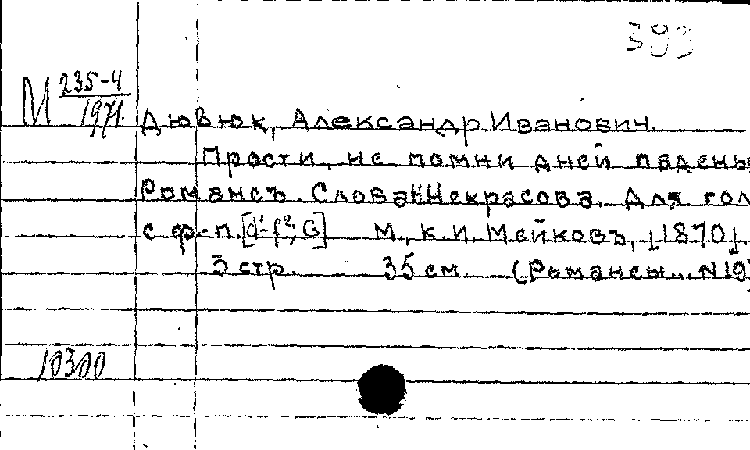 393
М 235-4
1971
Дювюк, Александр Иванович.
Прости, не помни дней паденья
Романсъ. Слова Н. Некрасова. Для гол.
с ф-п. [d¹-f², G] М., К. И. Мейковъ, ↓1870↓.
5 стр. 35 см. (Романсы... N 19)
10300